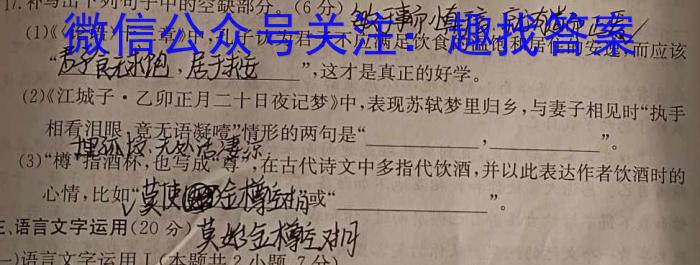 17.补写出下列句子中的空缺部分。(6分)
微信公众号关注：趣找答案
(1)《
中,
满足饮食
饱和居住的安逸,而应该
“君子食无求饱，居无求安”,这才是真正的好学。
(2)《江城子·乙卯正月二十日夜记梦》中,表现苏轼梦里归乡,与妻子相见时“执手
相看泪眼,竟无语凝噎”情形的两句是“____________,____________”。
无处话凄凉
(3)“樽”指酒杯,也写成“尊”,在古代诗文中多指代饮酒,并以此表达作者饮酒时的
心情,比如“莫使金樽空对月”或“____________”。
三、语言文字运用(20分) 莫使金樽空对月
(一)语言文字运用Ⅰ(本题共2小题,7分)